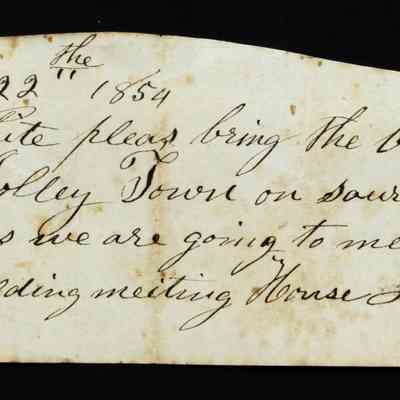 22 the 1854
pleas bring the
Town on
we are going to me
eding meiting House